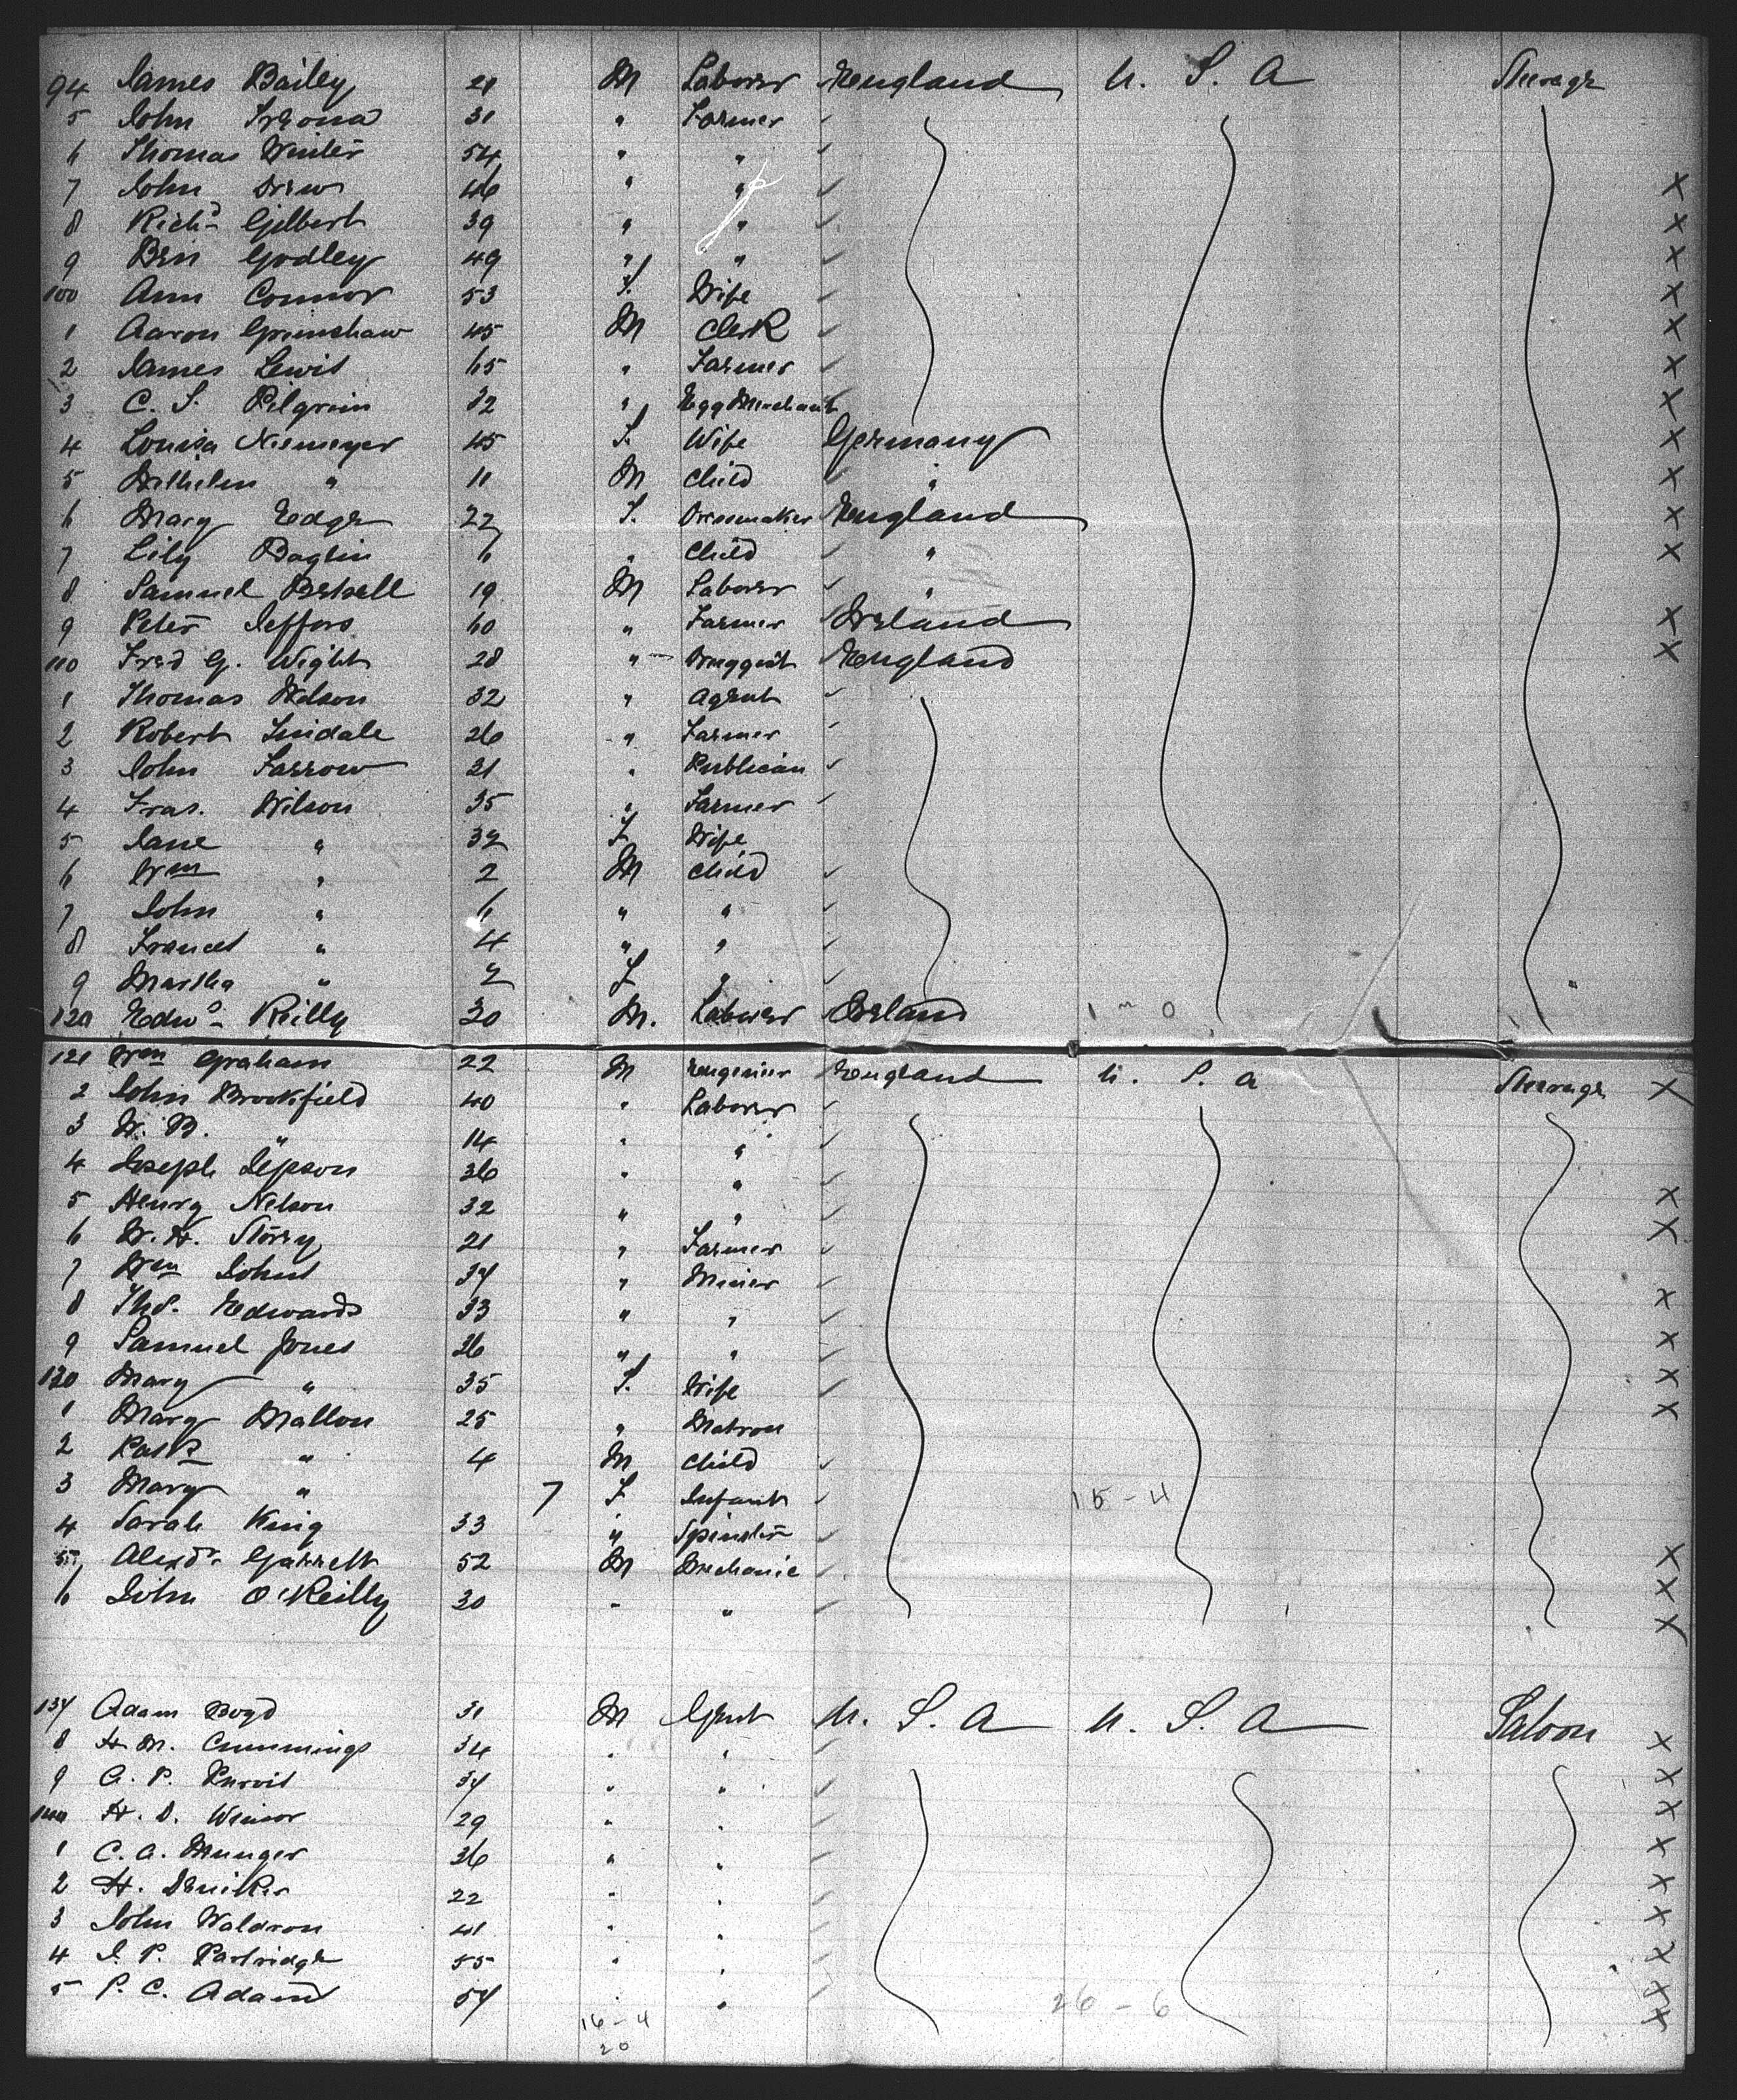 94 James Bailey 21 M Laborer England U. S. A Steerage
5 John 31 " Farmer
6 Thomas Winter 54 " "
7 John Drew 46 " " X
8 Richd Gilbert 39 " " X
9 Ben Godley 49 " " X
100 Ann Connor 53 F. Wife X
1 Aaron Grimshaw 45 M Clerk X
2 James Lewis 65 " Farmer X
3 C. S. Pilgrim 32 " Egg Merchant X
4 Louisa Niemeyer 45 F. Wife Germany X
5 Wilhelm " 11 M Child " X
6 Mary Edge 22 F. Dressmaker England X
7 Lily Baglin 6 " Child " X
8 Samuel 19 M Laborer "
9 Peter Jeffors 60 " Farmer Ireland X
110 Fred G. Wight 28 " Druggist England X
1 Thomas Wilson 32 " Agent
2 Robert Tindale 26 " Farmer
3 John Farrow 21 " Publican
4 Fras. Wilson 35 " Farmer
5 Jane " 32 F Wife
6 Wm " 2 M Child
7 John " 6 " "
8 Frances " 4 " "
9 Martha " 2 F "
120 Edwd Reilly 30 M. Laborer Ireland 1 - 0
121 Wm Graham 22 M Engineer England U. S. A Steerage X
2 John Brookfield 40 " Laborer
3 W. B. " 14 " "
4 Joseph Jepson 36 " "
5 Henry Nelson 32 " " X
6 W. H. Storry 21 " Farmer X
7 Wm Johns 34 " Miner
8 Thos. Edwards 33 " " X
9 Samuel Jones 36 " " X
130 Mary " 35 F. Wife X
1 Mary Mallon 25 " Matron X
2 Patk " 4 M Child
3 Mary " 7 F Infant 15 - 4
4 Sarah King 33 " Spinster
5 Alexdr Garrett 52 M Mechanic X
6 John O'Reilly 30 " " X
X
137 Adam Boyd 31 M Gent U. S. A U. S. A Saloon
8 H. M. Cummings 34 " " X
9 A. P. Purvis 34 " " X
140 H. D. Winsor 29 " " X
1 C. A. Munger 36 " " X
2 H. Deniker 22 " " X
3 John Waldron 41 " " X
4 J. P. Partridge 55 " " X
5 P. C. Adams 54 " " 26 - 6 X
16 - 4 X
20